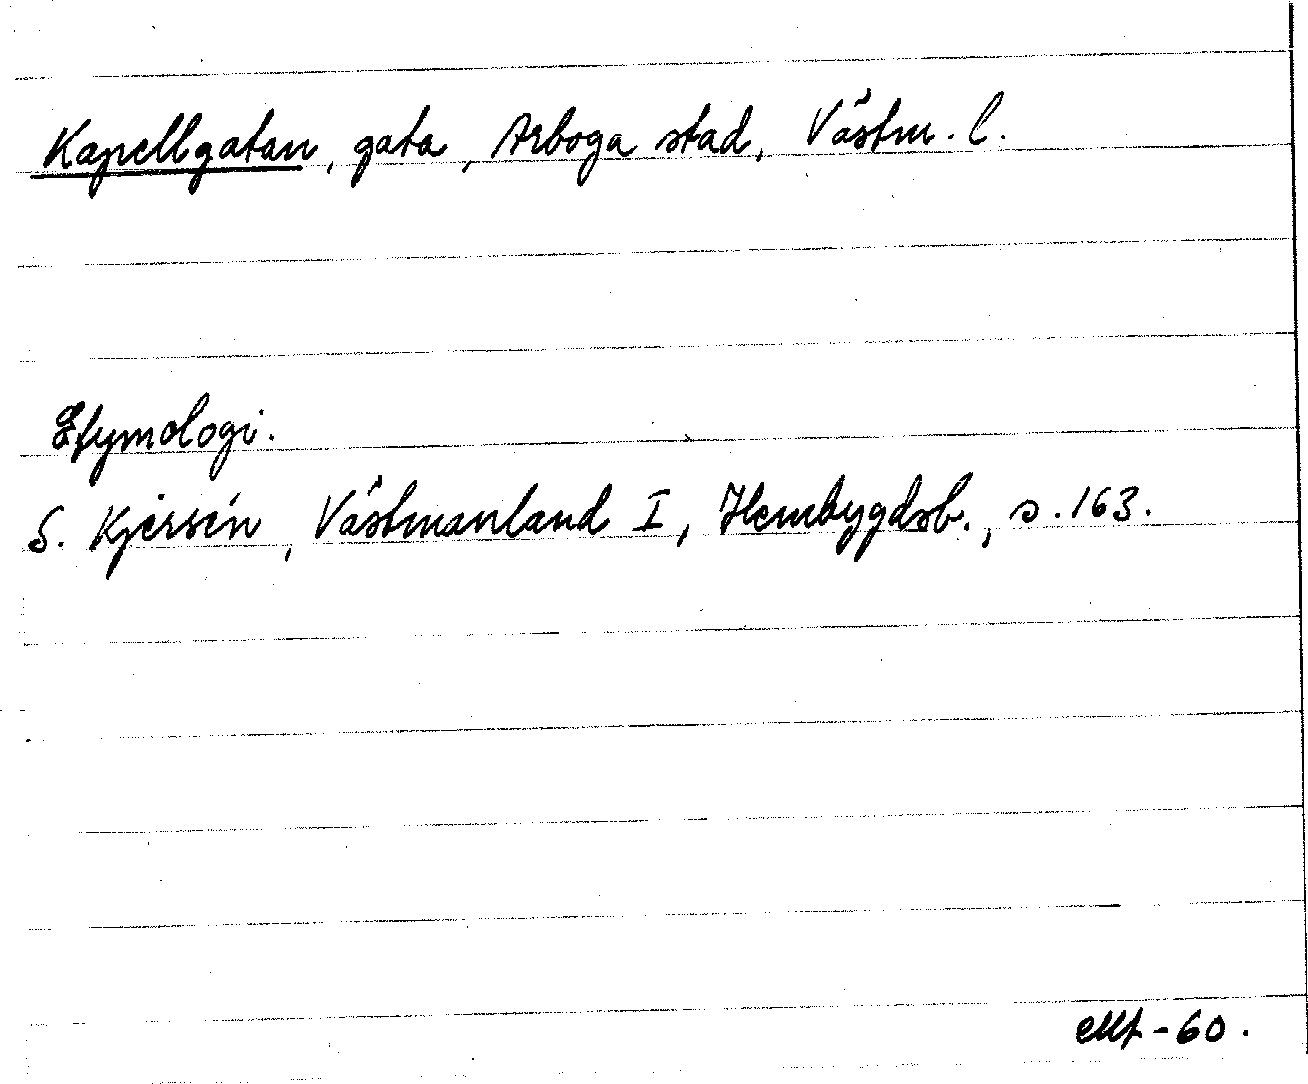 Kapellgatan, gata, Arboga stad, Västm. l.
Etymologi.
S. Kjersén, Västmanland I, Hembygdsb., s. 163.
-60.